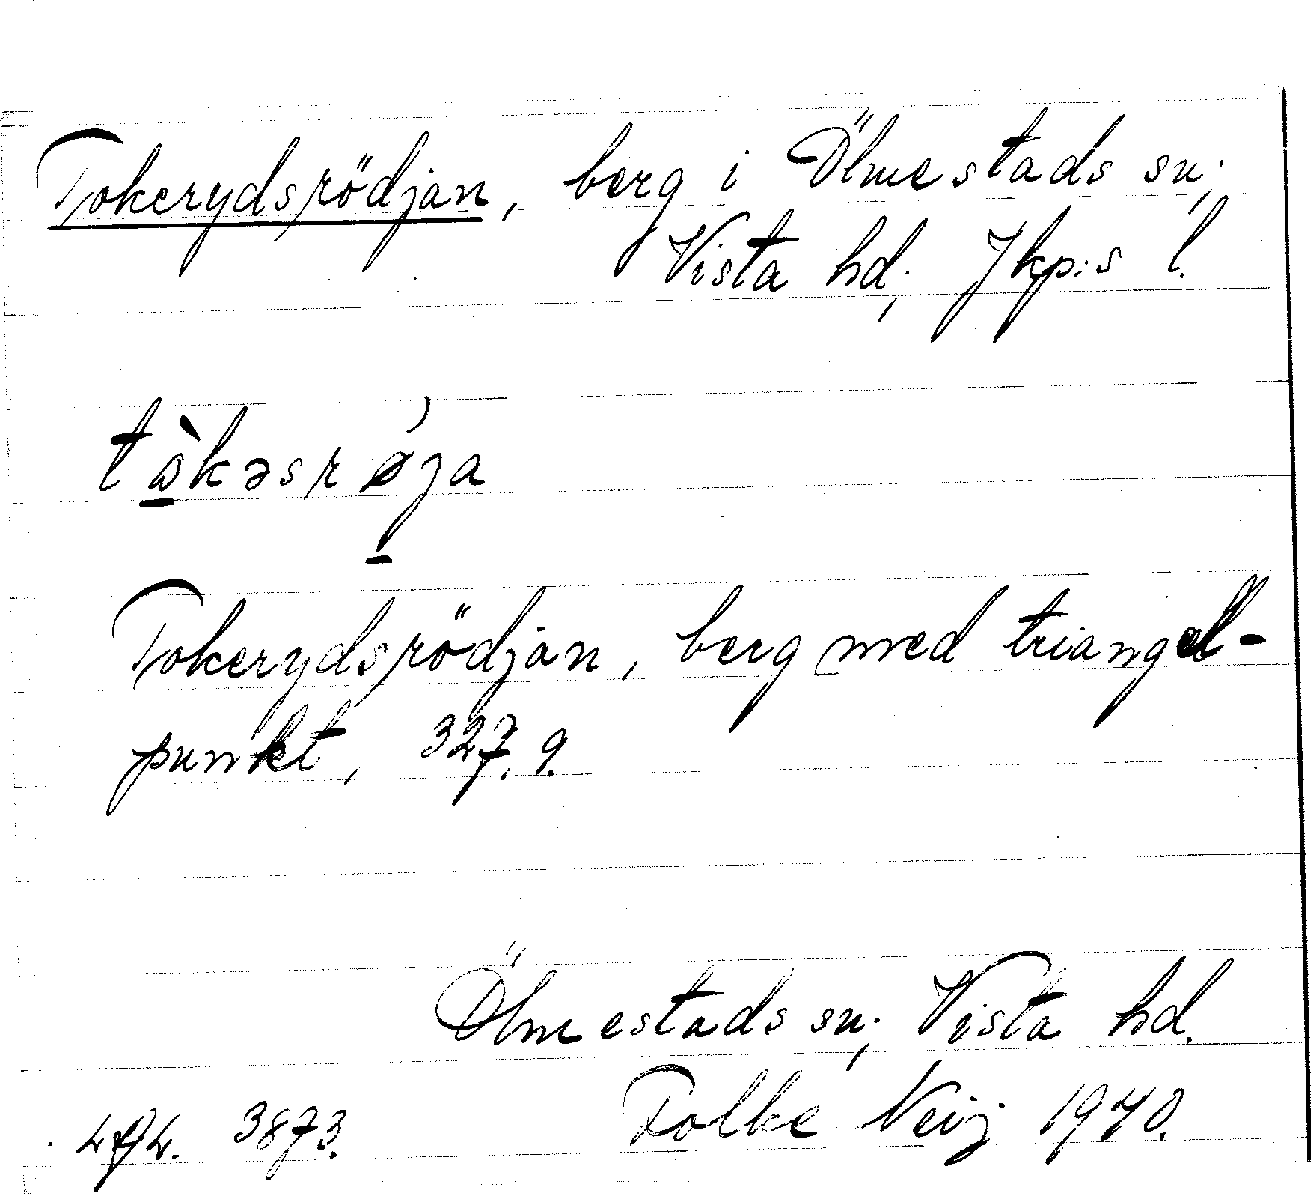 Tokerydsrödjan, berg i Ölmestads sn;
Vista hd; Jkp:s l.
Tokerydsrödjan, berg med triangel-
punkt, 327.9.
Ölmestads sn; Vista hd.
3873. Folke Neij 1940.